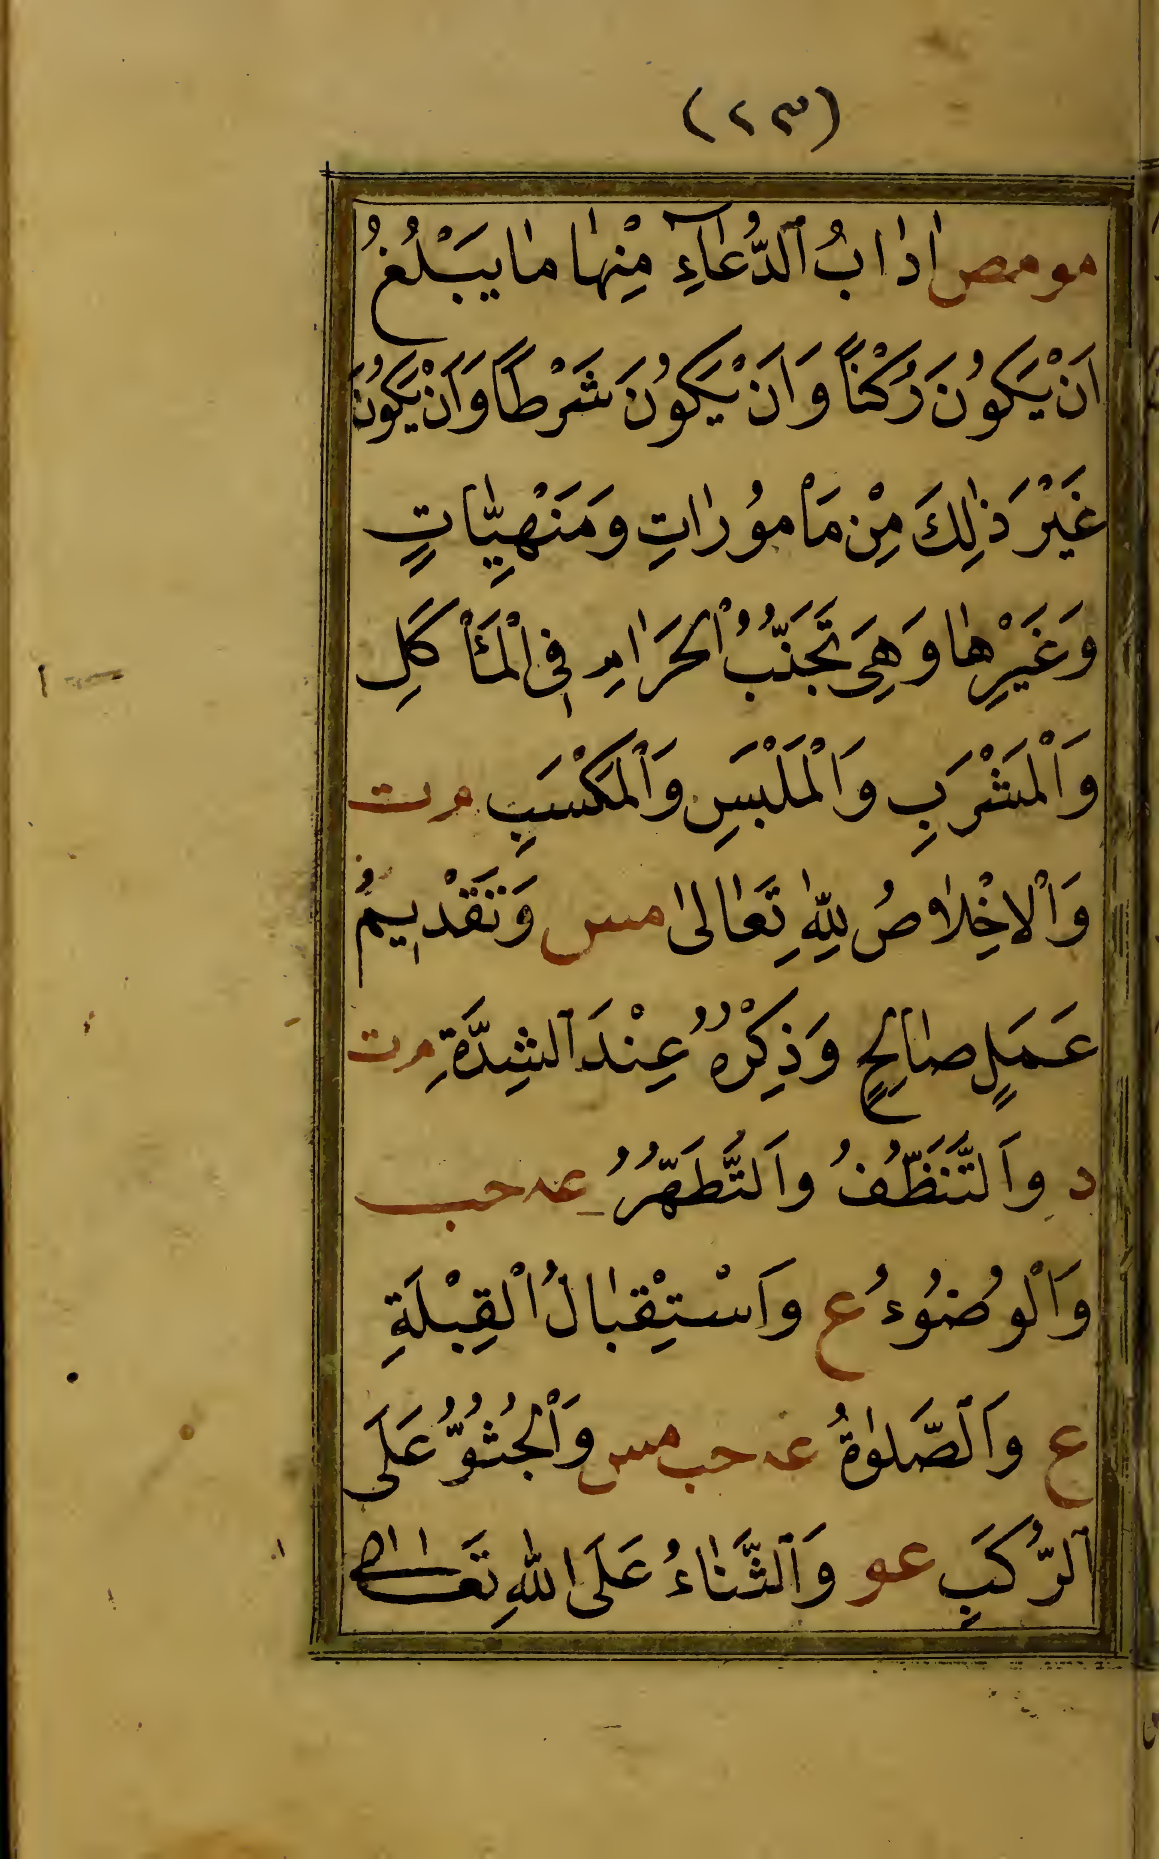 (٢٣)
مو مص اٰدٰابُ ٱلدُّعٰآءِ مِنْهٰا مٰا يَبْلُغُ
اَنْ يَكُونَ رُكْنًا وَاَنْ يَكُونَ شَرْطًا وَاَنْ يَكُونَ
غَيْرَ ذٰلِكَ مِنْ مَأْمُورٰاتِ وَمَنْهِيّٰاتٍ
وَغَيْرِهٰا وَهِيَ تَجَنُّبُ ٱلْحَرٰامِ فِى ٱلْمَأْكَلِ
وَٱلْمَشْرَبِ وَٱلْمَلْبَسِ وَٱلْمَكْسَبِ م ت
وَٱلْاِخْلٰاصُ لِلّٰهِ تَعٰالىٰ مس وَتَقْدِيمُ
عَمَلٍ صٰالِحٍ وَذِكْرُهُ عِنْدَ ٱلشِّدَّةِ م ت
د وَٱلتَّنَظُّفُ وَٱلتَّطَهُّرُ عه حب
وَٱلْوُضُوُءُ ع وَاَسْتِقْبٰالُ ٱلْقِبْلَةِ
ع وَٱلصَّلٰوةُ عه حب مس وَٱلْجُثُوُّ عَلَى
ٱلرُّكَبِ عو وَٱلثَّنٰاءُ عَلَى اللّٰهِ تَعَالىٰ